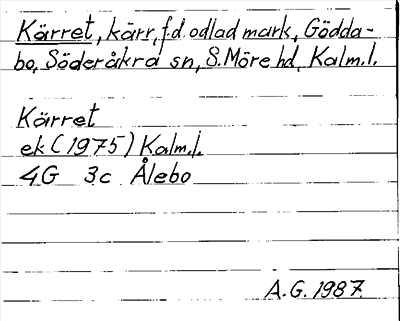 Kärret, kärr, f.d. odlad mark, Gödda-
bo, Söderåkra sn, S. Möre hd, Kalm. l.
Kärret
ek (1975) Kalm. l.
4G 3c Ålebo
A.G. 1987.